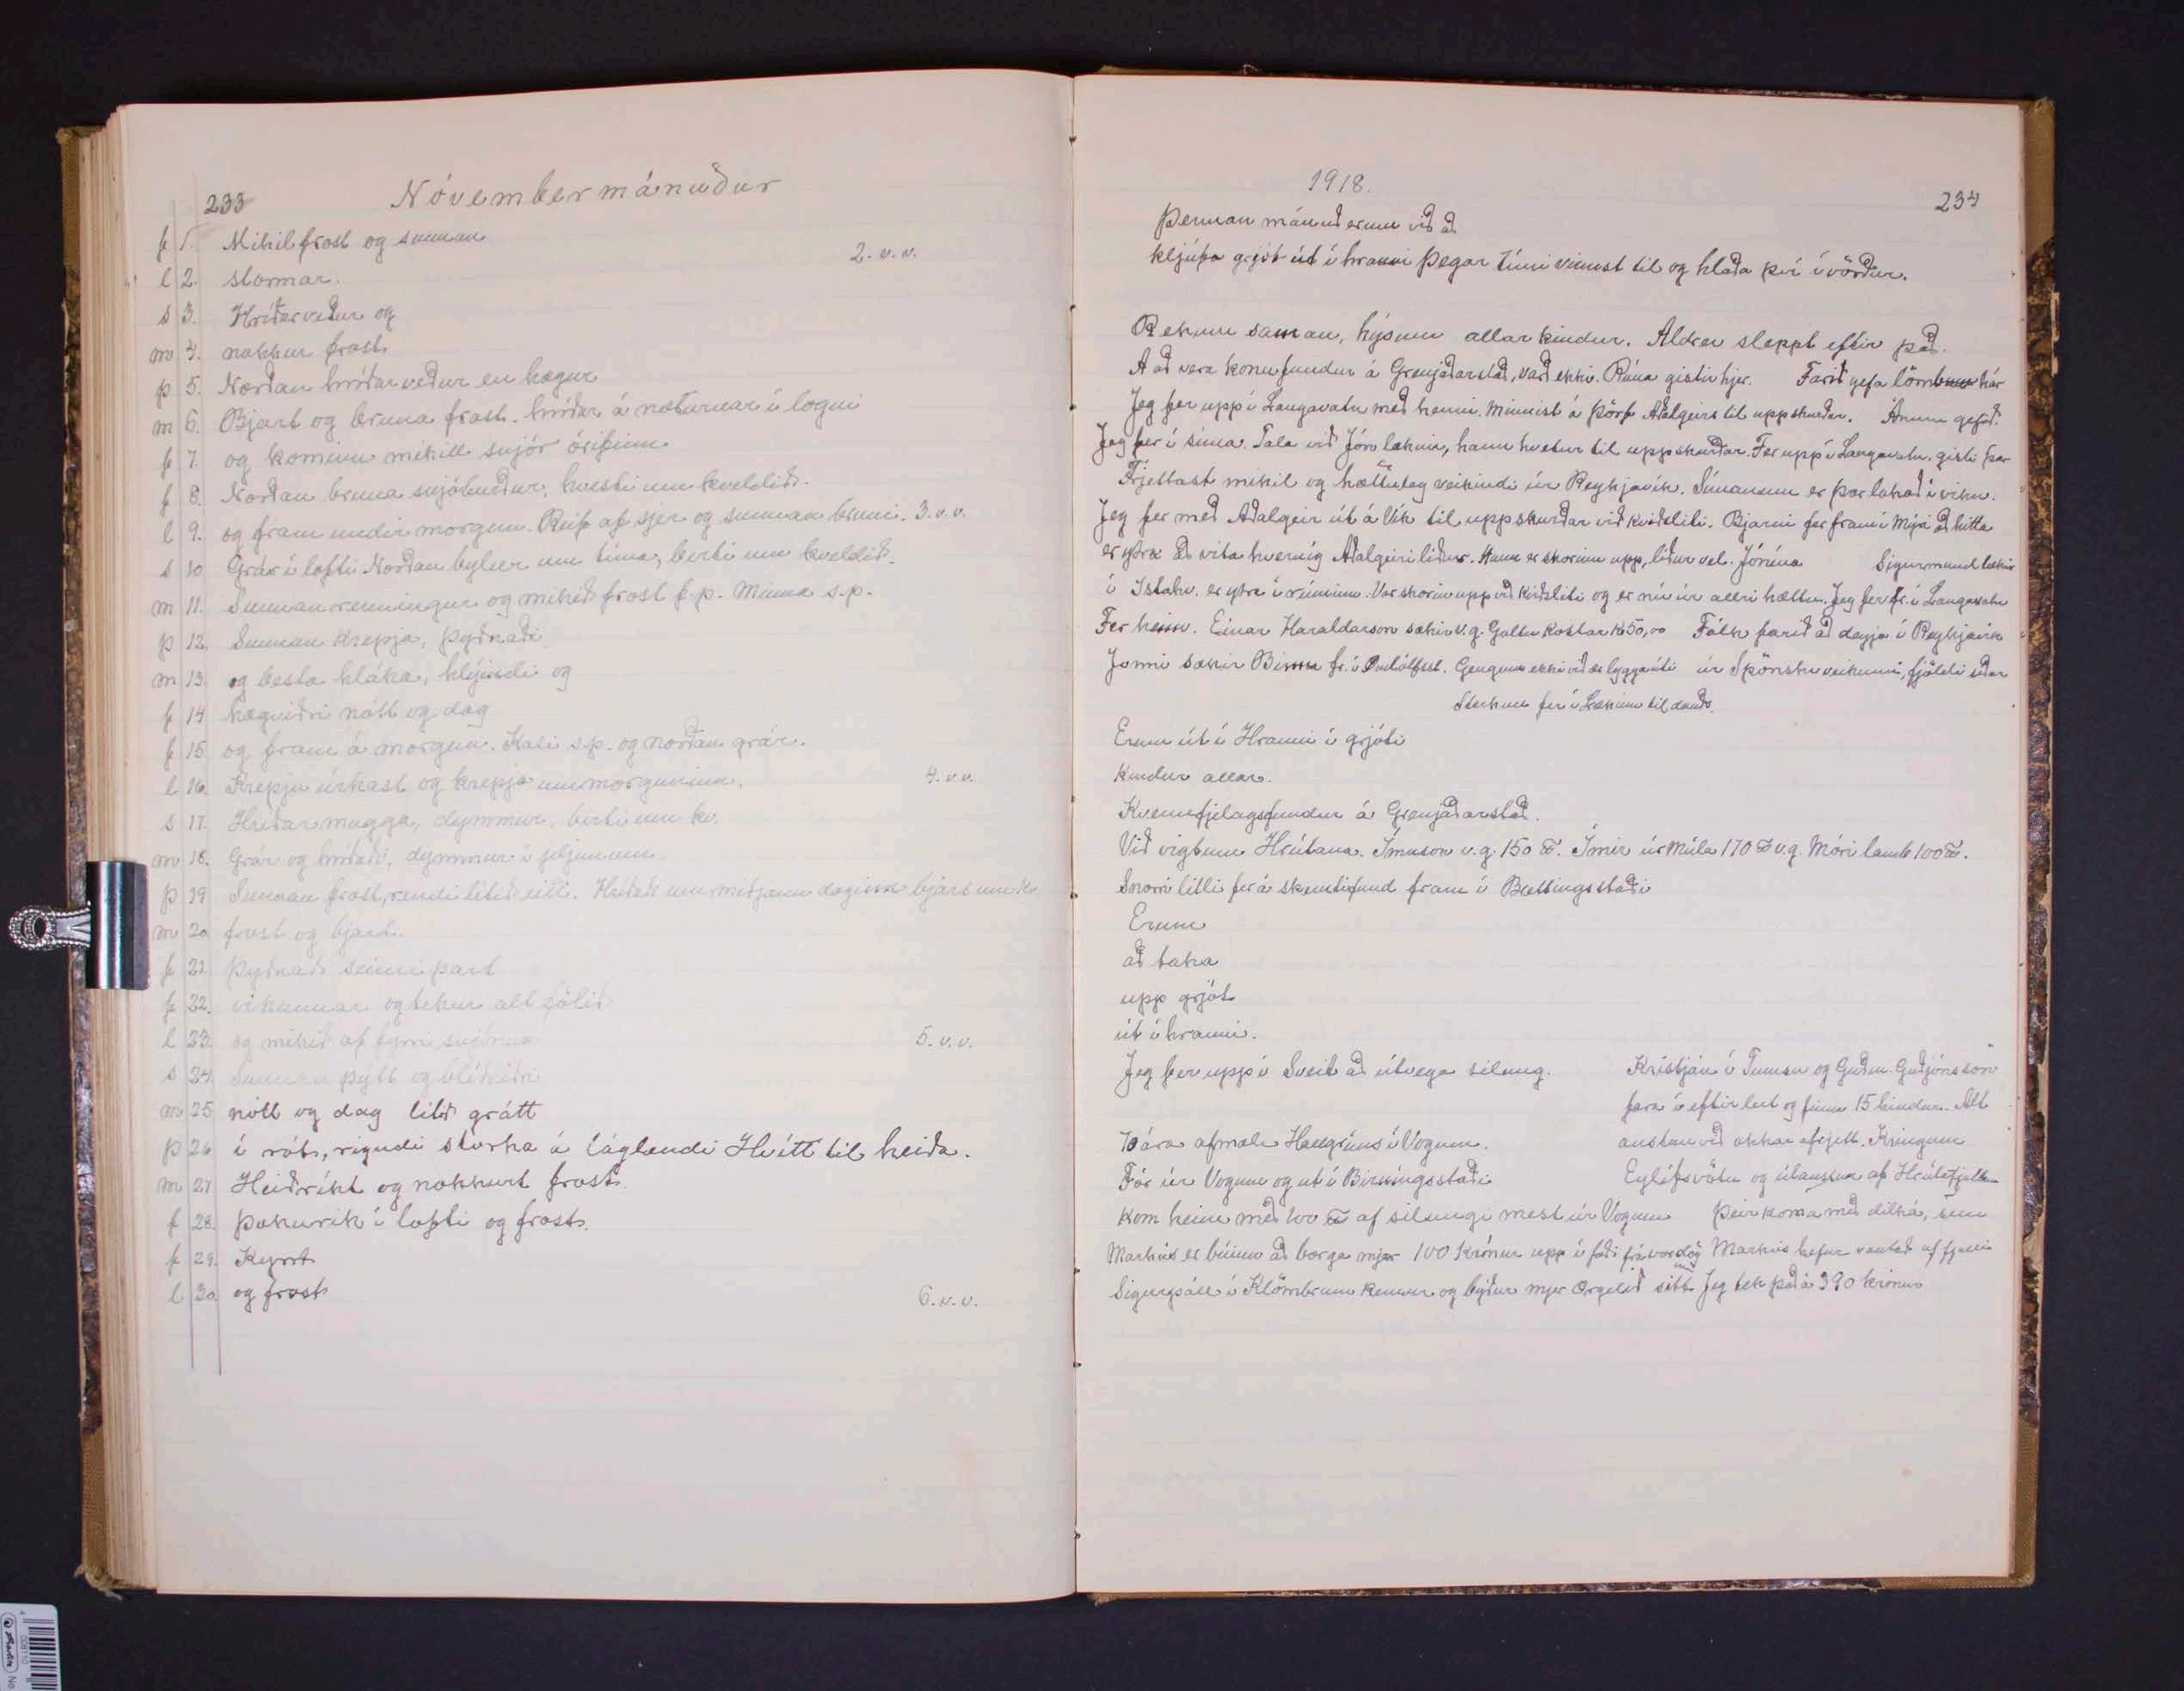 233 Nóvembermánuður
f 1. Mikil frost og sunnan
l 2. stormar. 2. v. v.
s 3. Hríðarveður og
m 4. nokkur frost
þ 5. Norðan hríðarveður en hægur
m 6. Bjart og bruna frost. hríðar á næturnar í logni
f 7. og kominn mikill snjór órifinn
f 8. Norðan bruna snjóburður, hvesti um kveldið.
l 9. og fram undir morgun. Reif af sjer og sunnan bruni. 3. v. v.
s 10 Grár í lofti Norðan bylur um tíma, birti um kveldið.
m 11. Sunnan renningur og mikið frost f.p. Minna s.p.
þ 12. Sunnan krepja, þyðnaði
m 13. og besta hláka, hlýindi og
f 14 hægviðri nótt og dag
f 15 og fram á morgun. Kali s.p. og norðan grár.
l 16. Krepju úrkast og krepja um morguninn. 4. v. v.
s 17. Hríðarmugga, dymmur, birti um kv.
m 18. Grár og hríðaði, dymmur í jeljunum
þ 19 Sunnan frost, rendi lítið eitt. Hríðaði um miðjann daginn bjart um kv.
m 20 frost og bjart.
f 21. þyðnaði seinni part
f 22. vikunnar og tekur alt fölið
l 23. og mikið af fyrri snjónum 5. v. v.
s 24. Sunnan þýtt og blíðviðri
m 25 nótt og dag litið grátt
þ 26 í rót, rigndi slorka á láglendi Hvítt til heiða.
m 27 Heiðríkt og nokkurt frost.
f 28. þokurik í lofti og frost.
f 29. Kyrrt
l 30 og frost 6. v. v.
1918. 234
Þennan mánuð erum við að
kljúfa grjót út í hrauni þegar tími vinnst til og hlaða því í vörður.
Rekum saman, hýsum allar kindur. Aldrei sleppt eftir það.
Að að vera konufundur á Grenjaðarstað, varð ekki. Rúna gistir hjer. Farið gefa lömbum hár
Jeg fer upp í Langavatn með henni. Minnist á þörf Aðalgeirs til uppskurðar. Ánum gefið.
Jeg fer í síma. Tala við Jón læknir, hann hvetur til uppskurðar. Fer upp í Langavatn. gisti þar
Frjettast mikil og hættuleg veikindi úr Reykjavík. Símanum er þar lokað í viku.
Jeg fer með Aðalgeir út á Vík til uppskurðar við kviðsliti. Bjarni fer fram í Mýri að hitta
er ytra að vita hvernig Aðalgeiri líður. Hann er skorinn upp, líður vel. Jónína Sigurmund læknir
í Ístahv. er ytra í rúminu. Var skorinn upp við kviðsliti og er nú úr allri hættu. Jeg fer fr. í Langavatn
Fer heim. Einar Haraldarson sækir v.g. Galtu kostar K 50,00 Fólk farið að deyja í Reykjavík
Jonni sækir Binna fr. í Indólfsst. Gengum ekki við ær byggaúti úr Spönsku veikinni, fjöldi síðar
Steknu fer í Lækinn til dauðs.
Erum út í Hrauni í grjóti
kindur allar.
Kvennfjelagsfundur á Grenjaðarstað.
Við vigtum Hrútana. Ímuson v.g. 150 ℔. Ímir úr Múla 170 ℔ v.g. Móri lamb 100 ℔.
Snorri litli fer á skemtifund fram í Brettingsstaði
Erum
að taka
upp grjót
út í hrauni.
Jeg fer upp í Sveit að útvega silung. Kristján í Tumsu og Guðm. Guðjónsson
fara í eftirleit og finna 15 kindur. Alt
70 ára afmæli Hallgríms í Vogum. austan við okkar afrjett. Kringum
Fór úr Vogum og út í Birningsstaði Eylífsvötn og útaustan af Hrútafjöllum
Kom heim með 100 ℔ af silungi mest úr Vogum Þeir koma með dilká, sem
Markús er búinn að borga mjer 100 krónur upp í fæði frá vordög Markús hefur vantað af fjalli
Sigurpáll í Klömbrum kemur og býður mjer Orgelið sitt. Jeg tek það á 390 krónur